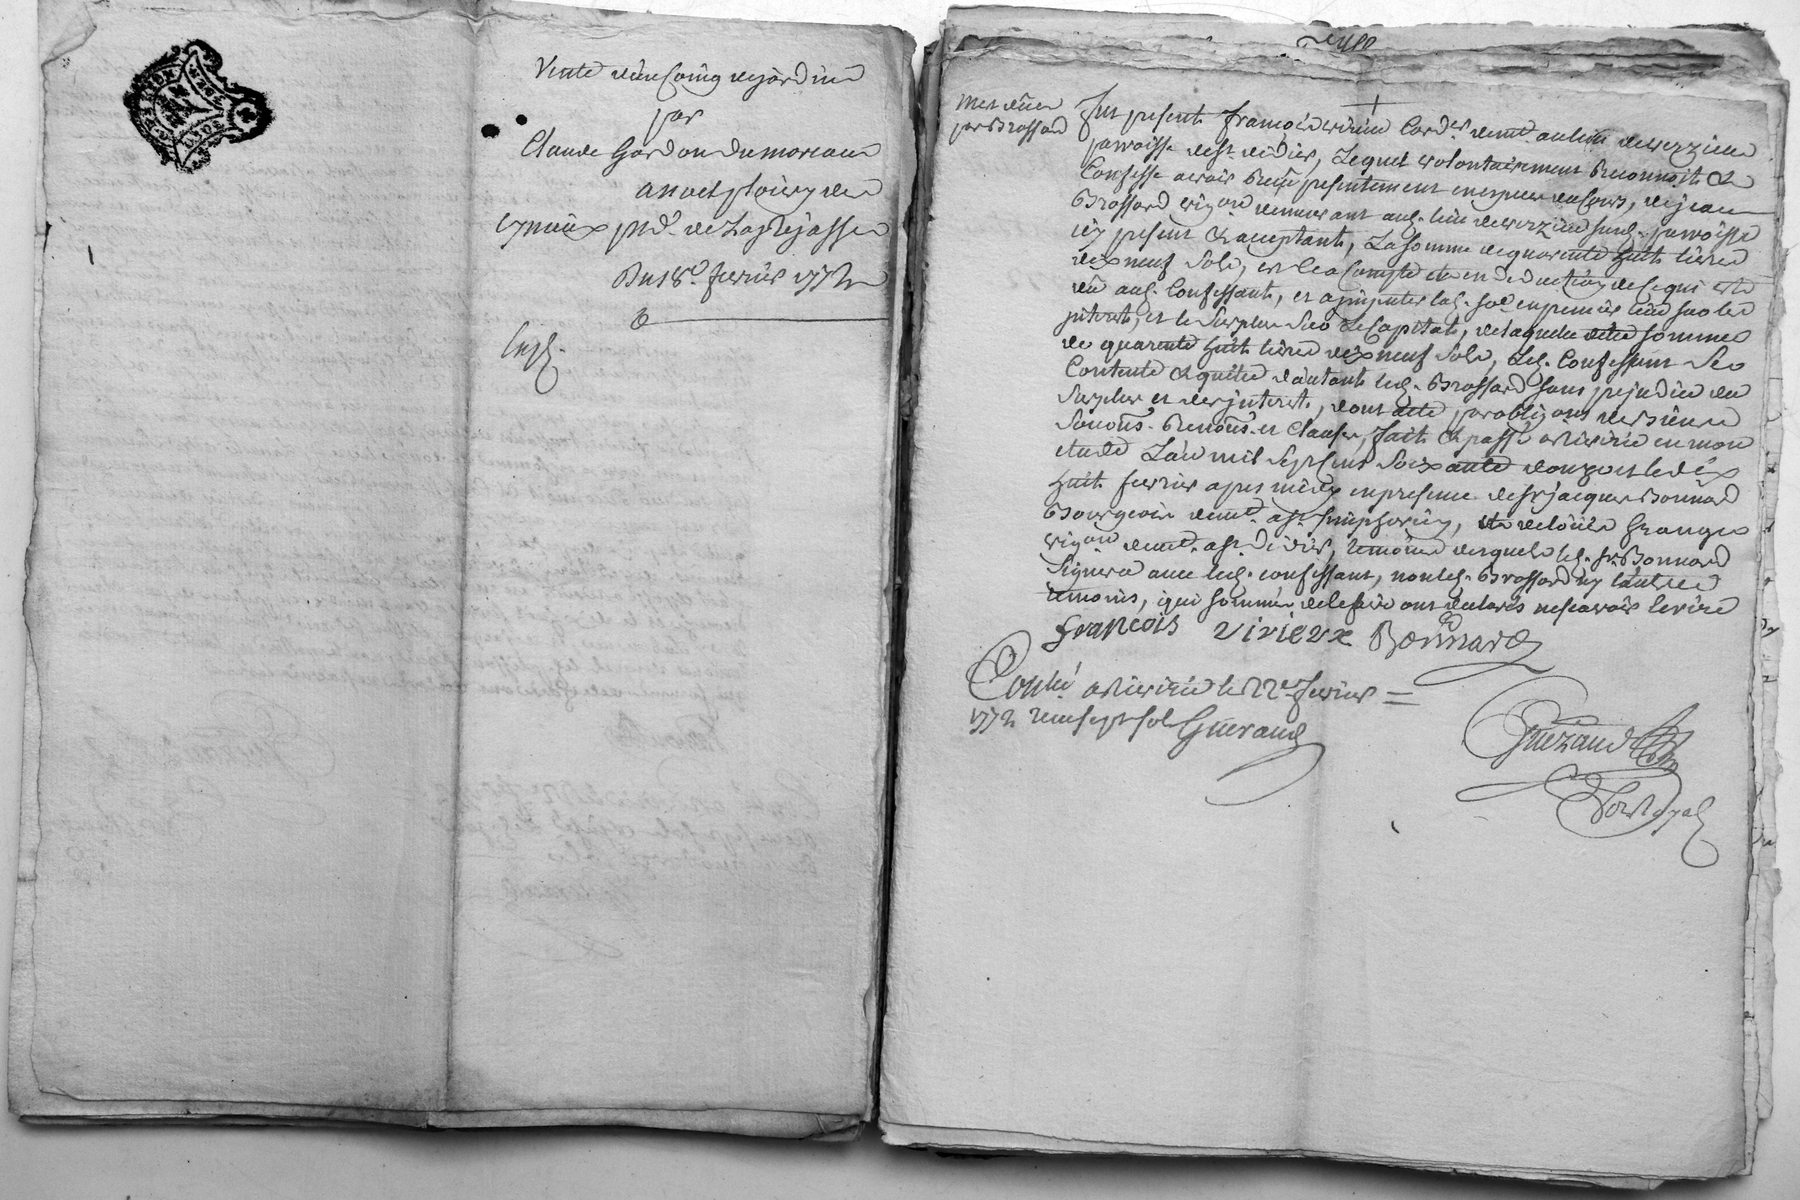 Vente d'un Coing de jardin
par
Claude Gardon du moreau
a noel ploiery de
du 18e. fevrier 1772
Exp.
par Brossard
fut present françois virieu Cord.r dem.t au lieu de verzieu
paroisse de st. didier, Lequel volontairement Reconnoit &
Confesse avoir Reçu presentement en especes du Cours, de jean
Brossard vigon demeurant aud. lieu de verzieu susd. paroisse
icy present & acceptant, La somme de quarente huit livres
dix neuf sols, et Ce a Compte et en deduction de ce qui est
du aud. Confessant, et a imputer lad. so.e en premier lieu sur les
jnterets, et le Surplus Sur Le Capital, de laquelle ditte somme
de quarente huit livres dix neuf sols, Led. Confessant Se
Contente & quitte d'autant led. Brossard sans prejudice du
Surplus et des jnterets, dont acte par obligãons de Biens
Soumõns. Renoñs. et Clauses, fait & passé a Riverie en mon
etude L'an mil sept cent soixante douze et le dix
huit fevrier apres midy en presence de sr jacques Bonnard
Bourgeois dem.t a st. simphorien, et de loüis Grange
vigon dem.t a st. didier, temoins desquels led. sr. Bonnard
Signera avec led. confessant, non led. Brossard ny l'autre
temoins, qui sommés de le faire ont declarés ne scavoir Ecrire
françois virieux Bonnard
Conlé a Riverie le 22e fevrier
1772 Reçu sept sols Guerand
Guerand